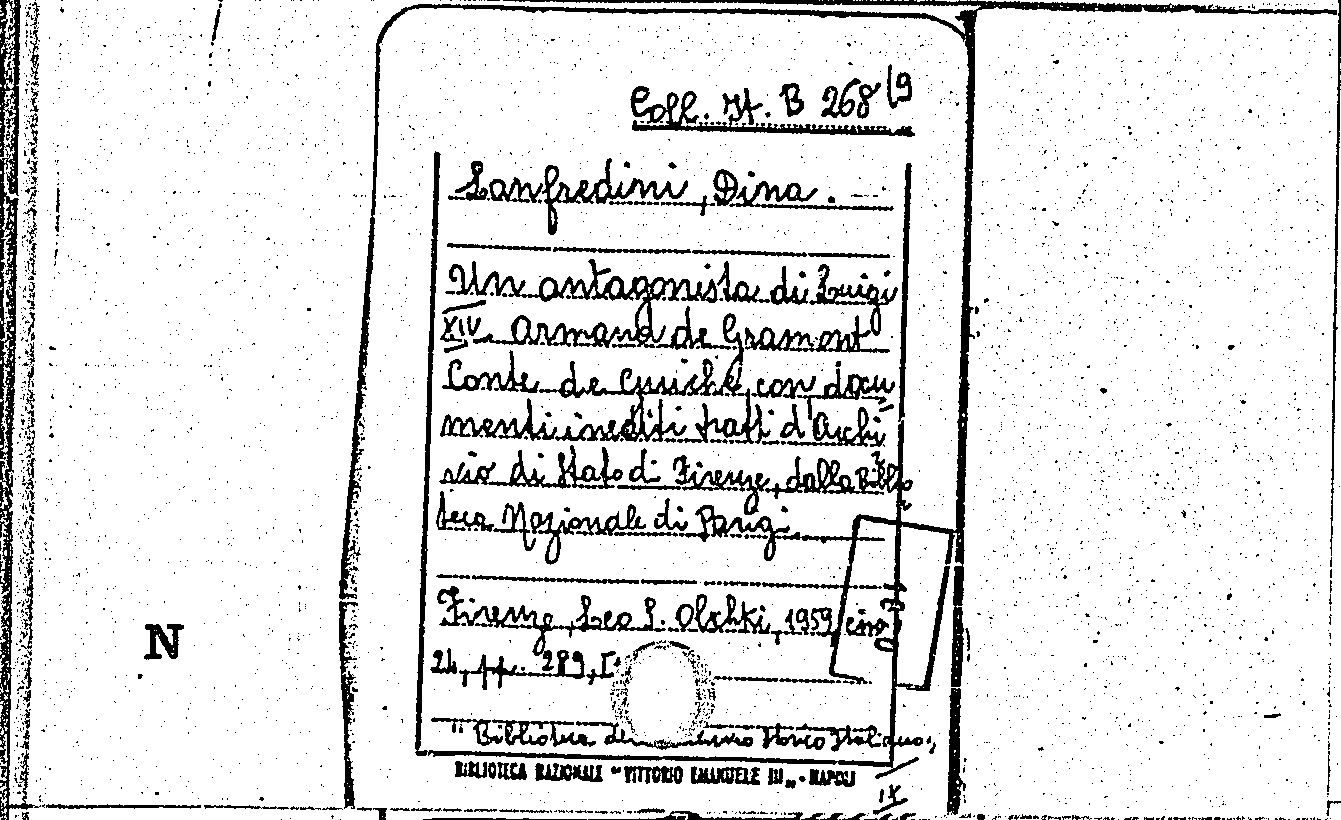 Coll. It. B 268/9
Lanfredini, Dina.
Un antagonista di Luigi
XIV. Armand de Gramont
Conte de Guiche, con docu
menti inediti tratti d'Archi
vio di Stato di Firenze, dalla Biblio
teca Nazionale di Parigi.
Firenze, Leo S. Olschki, 1959,
24, pp. 289,
N
"Biblioteca dell' Storico Italiano",
BIBLIOTECA NAZIONALE "VITTORIO EMANUELE III" - NAPOLI
IX